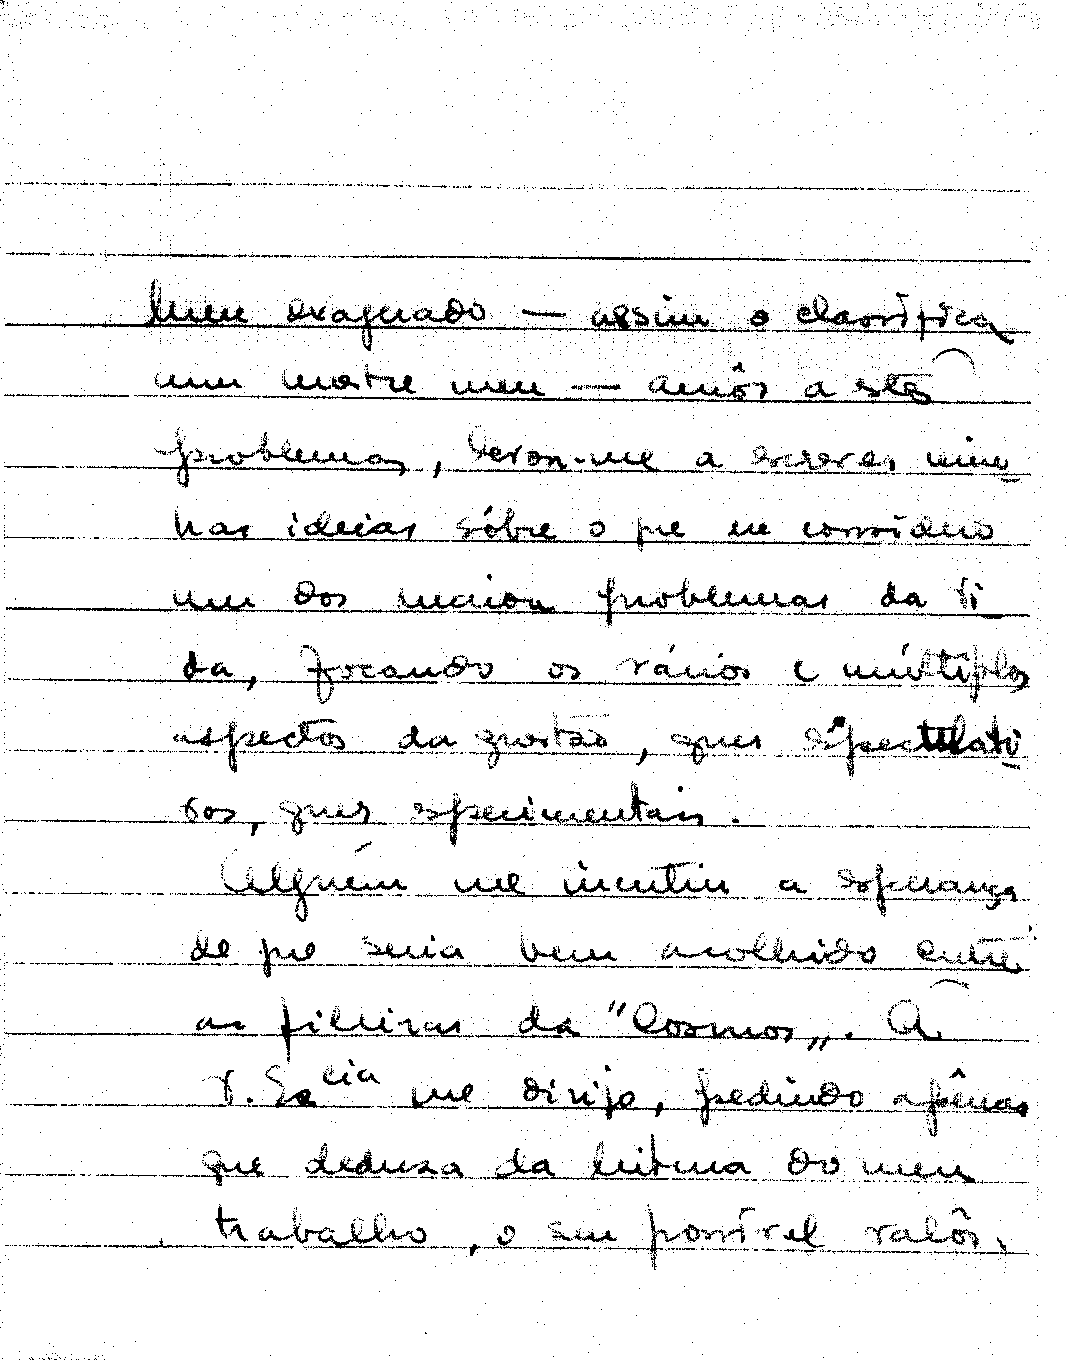 meu exagerado — assim o classifica
um mestre meu — amôr a estes
problemas, levou-me a escrever min-
has ideias sôbre o que eu considero
um dos maiores problemas da vi-
da, focando os vários e múltiplos
aspectos da questão, quer especulati-
vos, quer esperimentais.
Alguém me incutiu a esperança
de que seria bem acolhido entre
as fileiras da "Cosmos„. A
V. Ex^cia me dirijo, pedindo apênas
que deduza da leitura do meu
trabalho, o seu possível valôr.